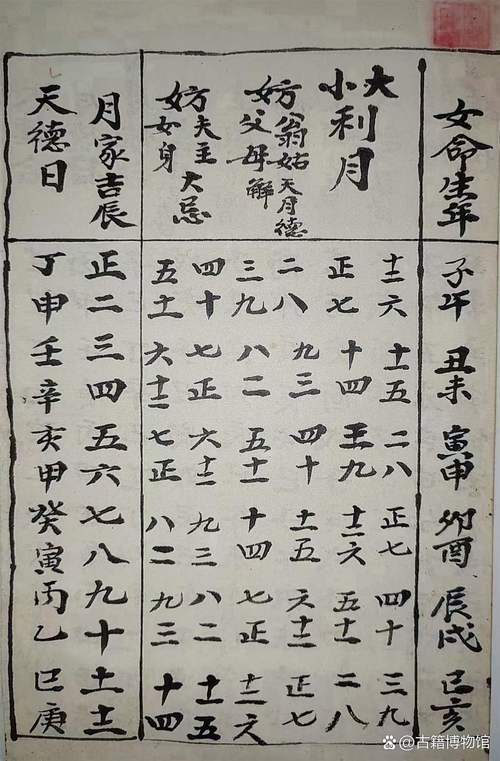 女命生年
子午 丑未 寅申 卯酉 辰戌 巳亥
大小利月
十二六 十一五 二八 正七 四十 三九
正七 十四 三九 十二六 五十一 二八
妨翁姑天月德
妨父母解
二八 九三 四十 十一五 六十二 正七
三九 八二 五十一 十四 七正 十二六
妨夫主大忌
妨女身
四十 七正 六十二 九三 八二 十一五
五十一 六十二 七正 八二 九三 十四
月家吉辰
正二三四五六七八九十十一十二
天德日
丁申壬辛亥甲癸寅丙乙巳庚
古籍博物馆